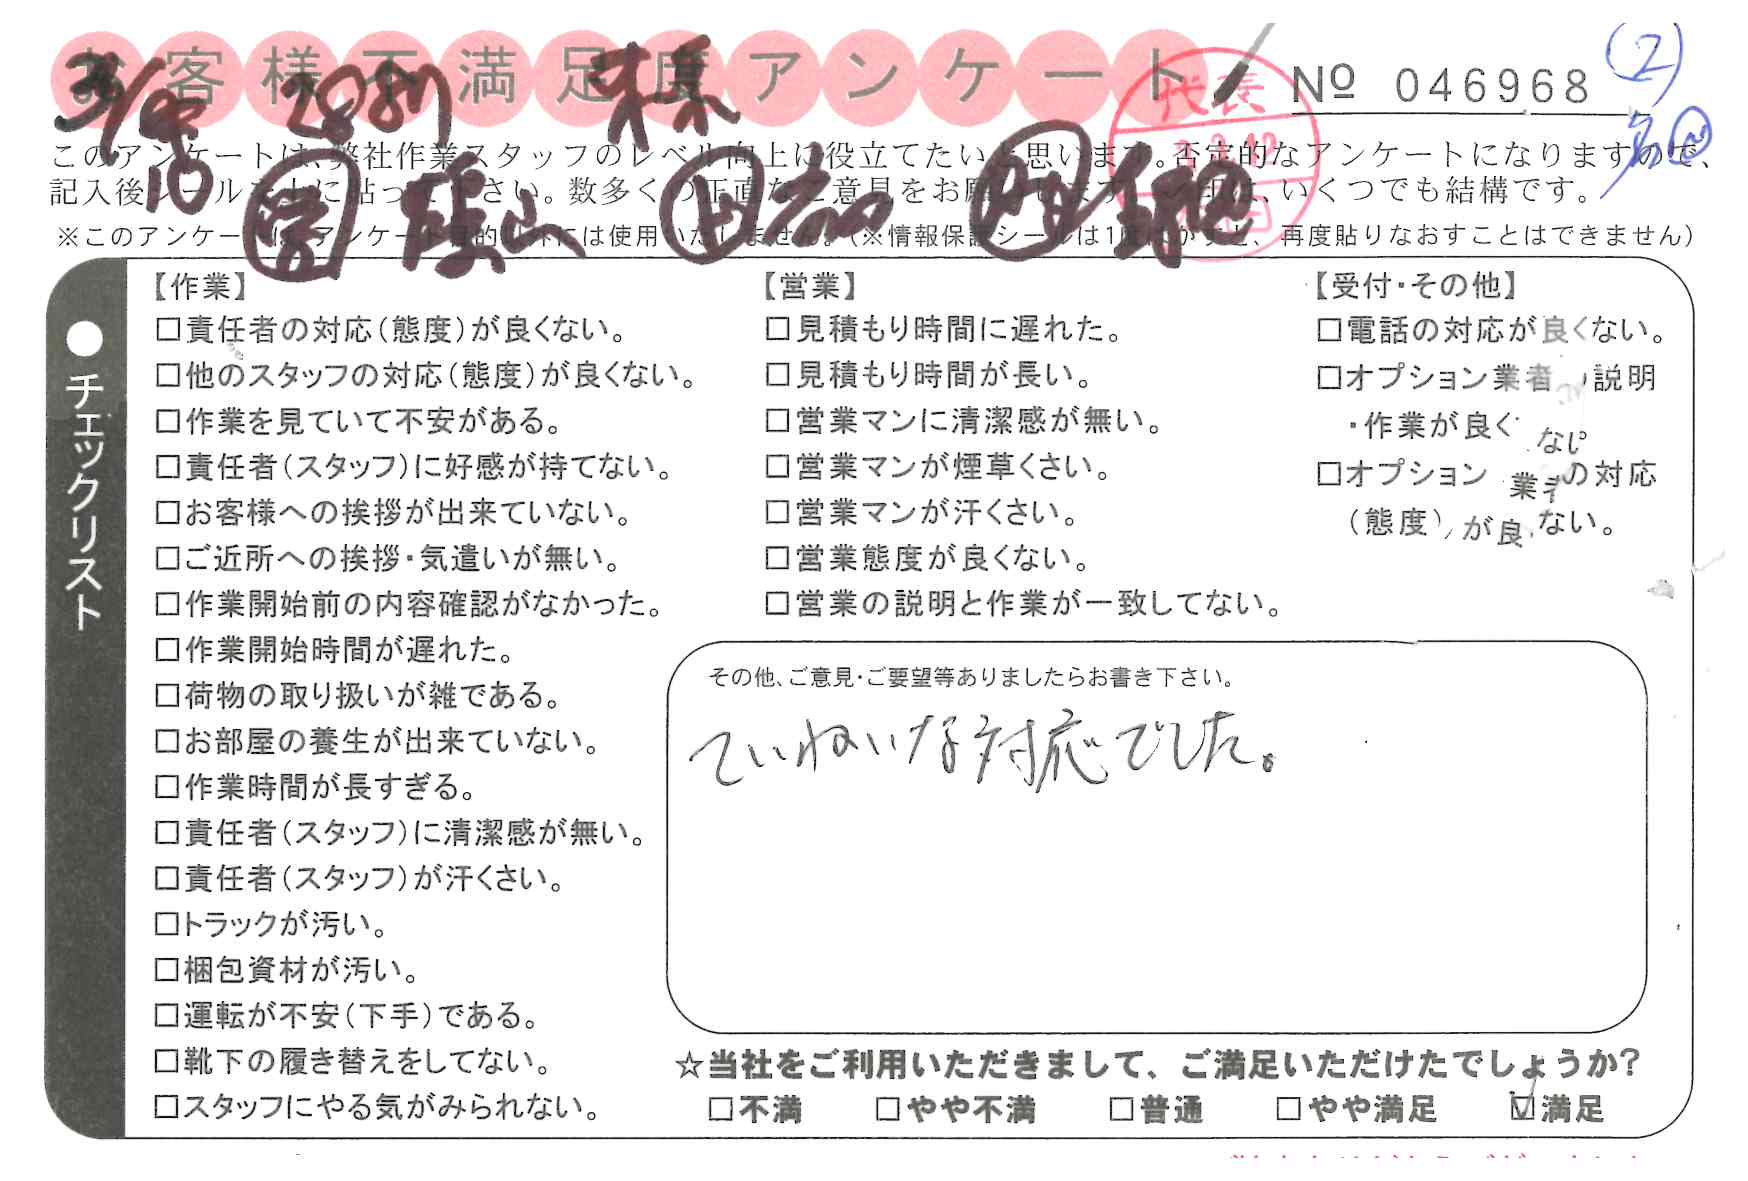 お客様不満足度アンケート
№ 046968
(2)
様
代表
このアンケートは、弊社作業スタッフのレベル向上に役立てたいと思います。否定的なアンケートになりますので、
記入後シールを上に貼って下さい。数多くの正直なご意見をお願いします。
いくつでも結構です。
※このアンケートは、アンケート目的以外には使用いたしません。(※情報保護シールは1度はがすと、再度貼りなおすことはできません)
●チェックリスト
【作業】
□責任者の対応(態度)が良くない。
□他のスタッフの対応(態度)が良くない。
□作業を見ていて不安がある。
□責任者(スタッフ)に好感が持てない。
□お客様への挨拶が出来ていない。
□ご近所への挨拶・気遣いが無い。
□作業開始前の内容確認がなかった。
□作業開始時間が遅れた。
□荷物の取り扱いが雑である。
□お部屋の養生が出来ていない。
□作業時間が長すぎる。
□責任者(スタッフ)に清潔感が無い。
□責任者(スタッフ)が汗くさい。
□トラックが汚い。
□梱包資材が汚い。
□運転が不安(下手)である。
□靴下の履き替えをしてない。
□スタッフにやる気がみられない。
【営業】
□見積もり時間に遅れた。
□見積もり時間が長い。
□営業マンに清潔感が無い。
□営業マンが煙草くさい。
□営業マンが汗くさい。
□営業態度が良くない。
□営業の説明と作業が一致してない。
【受付・その他】
□電話の対応が良くない。
□オプション業者の説明
・作業が良くない
□オプション業者の対応
(態度)が良くない。
その他、ご意見・ご要望等ありましたらお書き下さい。
ていねいな対応でした。
☆当社をご利用いただきまして、ご満足いただけたでしょうか?
□不満 □やや不満 □普通 □やや満足 ☑満足